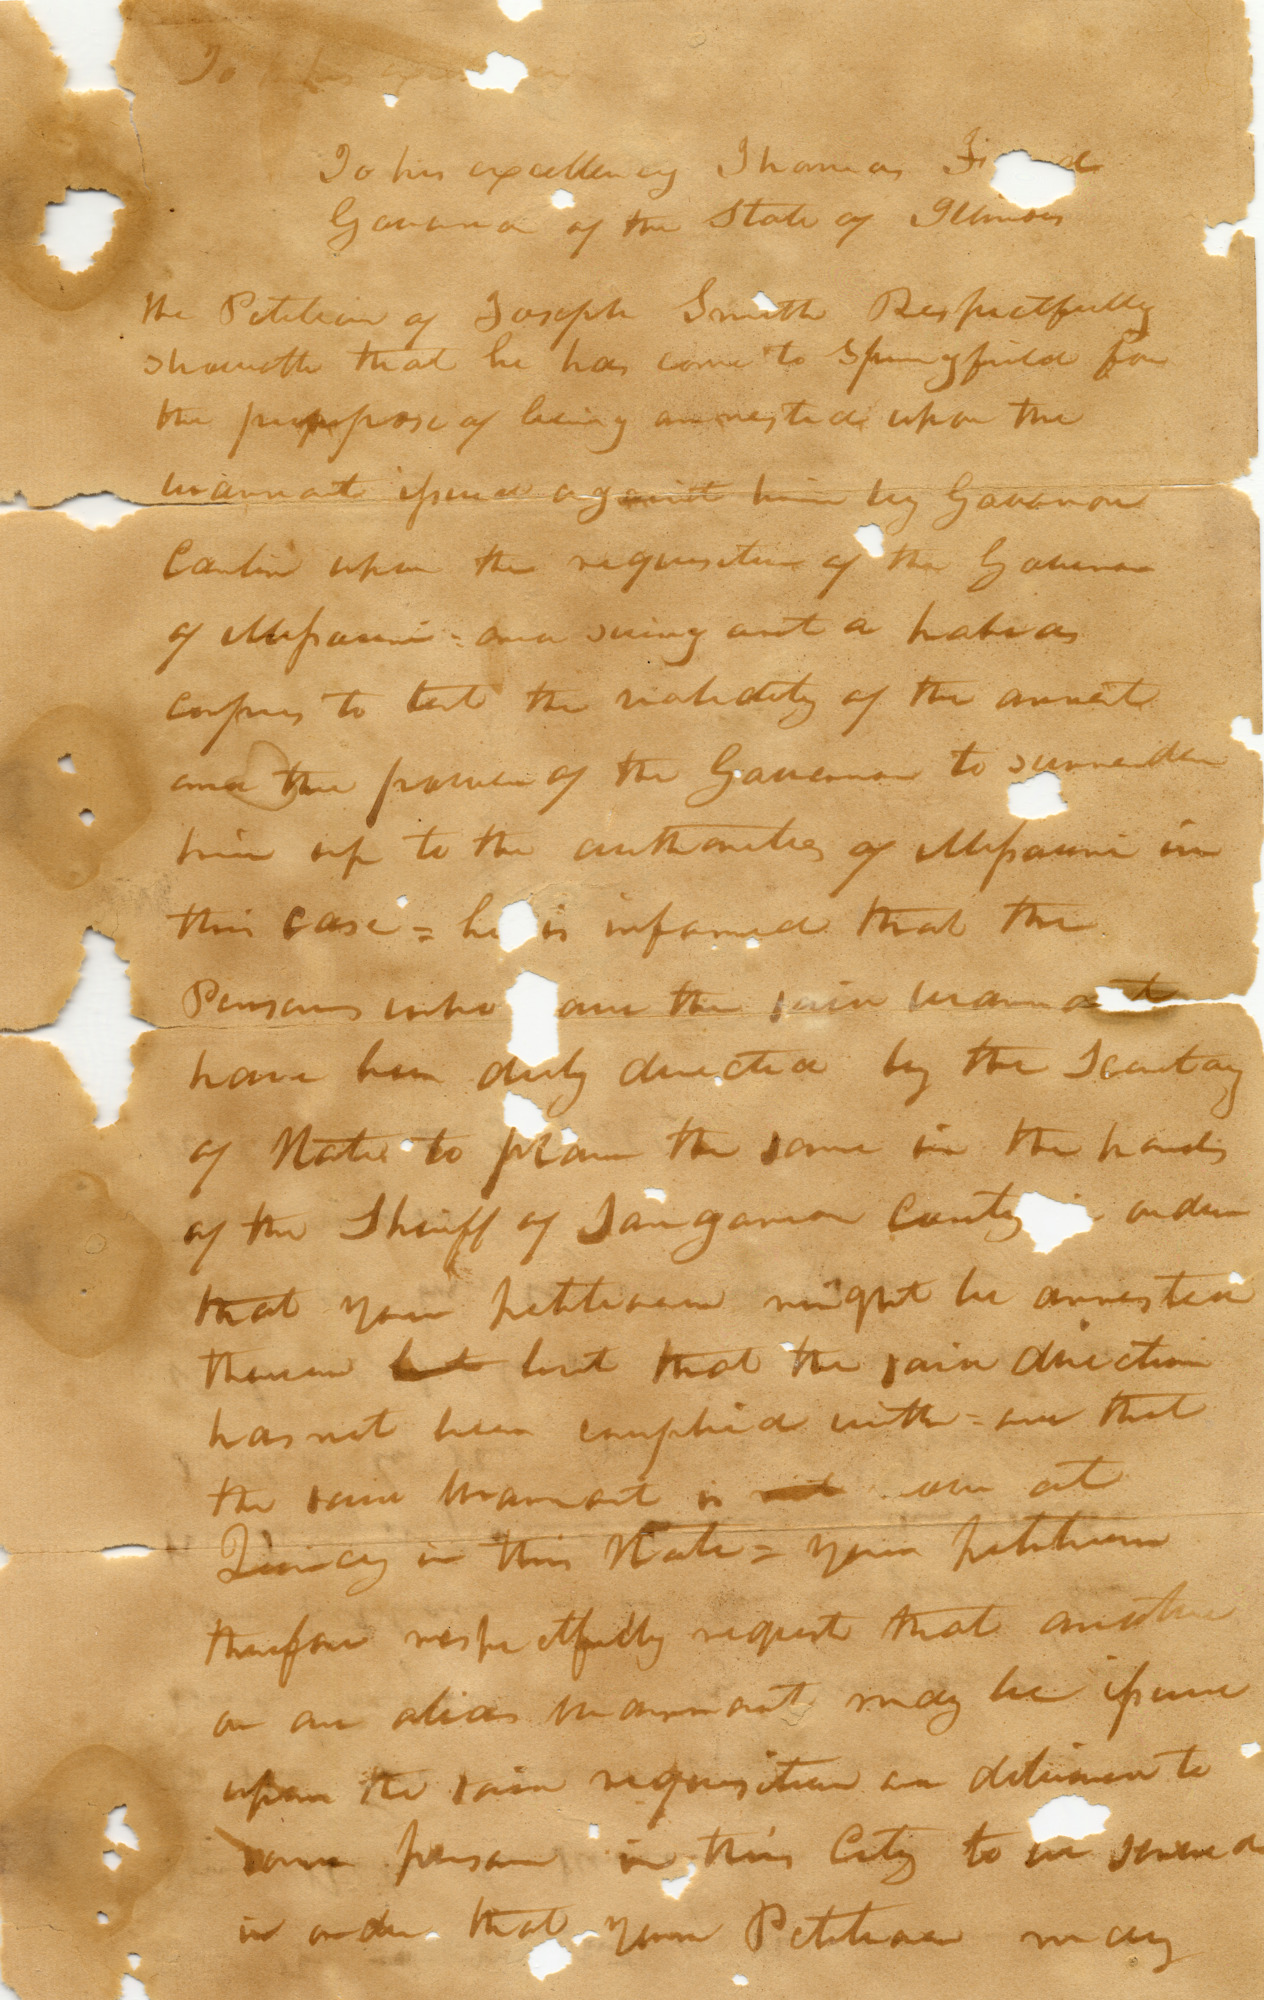 To his excellency
To his excellency Thomas F d
Governor of the State of Illinois
the Petition of Joseph Smith Respectfully
showeth that he has come to Springfield for
the purpose of being arrested upon the
warrant issued against him by Governor
Carlin upon the requisition of the Governor
of Missouri = and suing out a habeas
corpus to test the validity of the arrest
and the power of the Governor to surrender
him up to the authorities of Missouri in
this case = he is informed that the
Persons who have the said warrant
have been duly directed by the Secretary
of State to place the same in the hands
of the Sheriff of Sangamon County in order
that your petitioner might be arrested
thereon but but that the said direction
has not been complied with = and that
the said Warrant is now at
Quincy in this State = your petitioner
therefore respectfully request that another
or an alias Warrant may be issued
upon the said requisition and delivered to
some person in this City to be served
in order that your Petitioner may